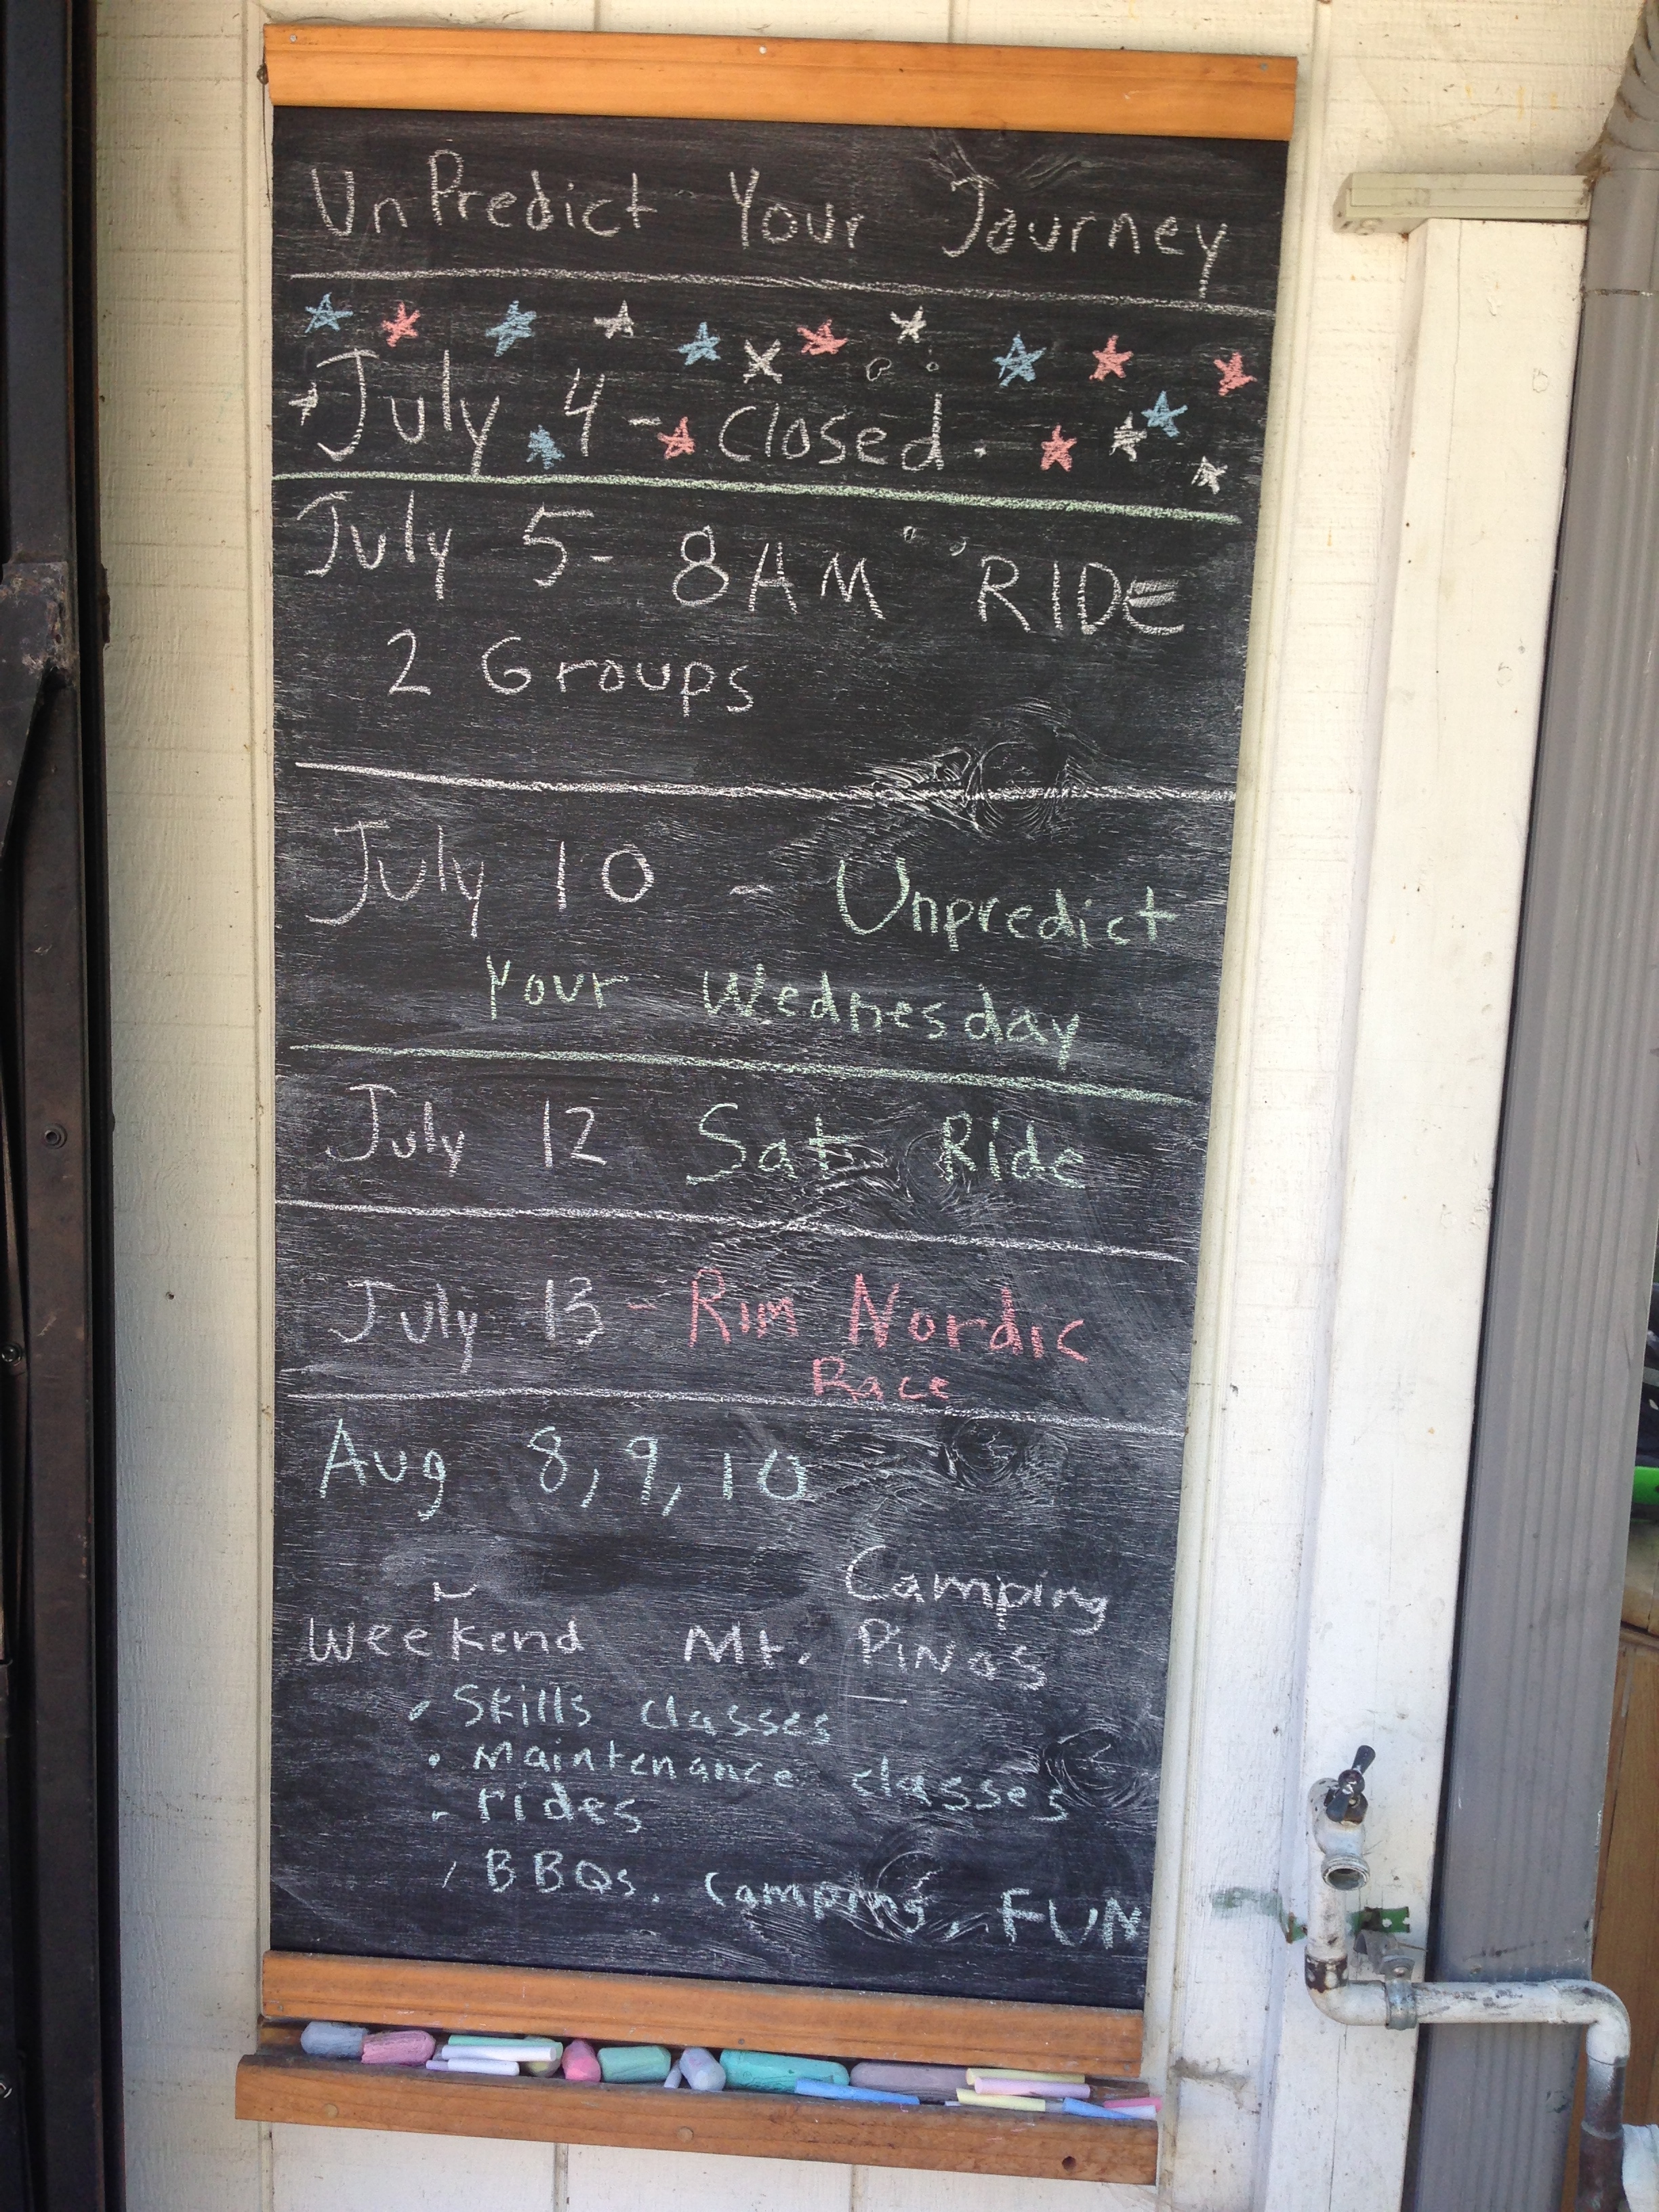 UnPredict Your Journey
July 4 - closed.
July 5 - 8AM RIDE
2 Groups
July 10 - Unpredict
Your Wednesday
July 12 Sat Ride
July 13 - Rim Nordic
Race
Aug 8, 9, 10
Camping
Weekend Mt. Pinos
- Skills classes
• Maintenance classes
- rides
- BBQs. Camping. FUN